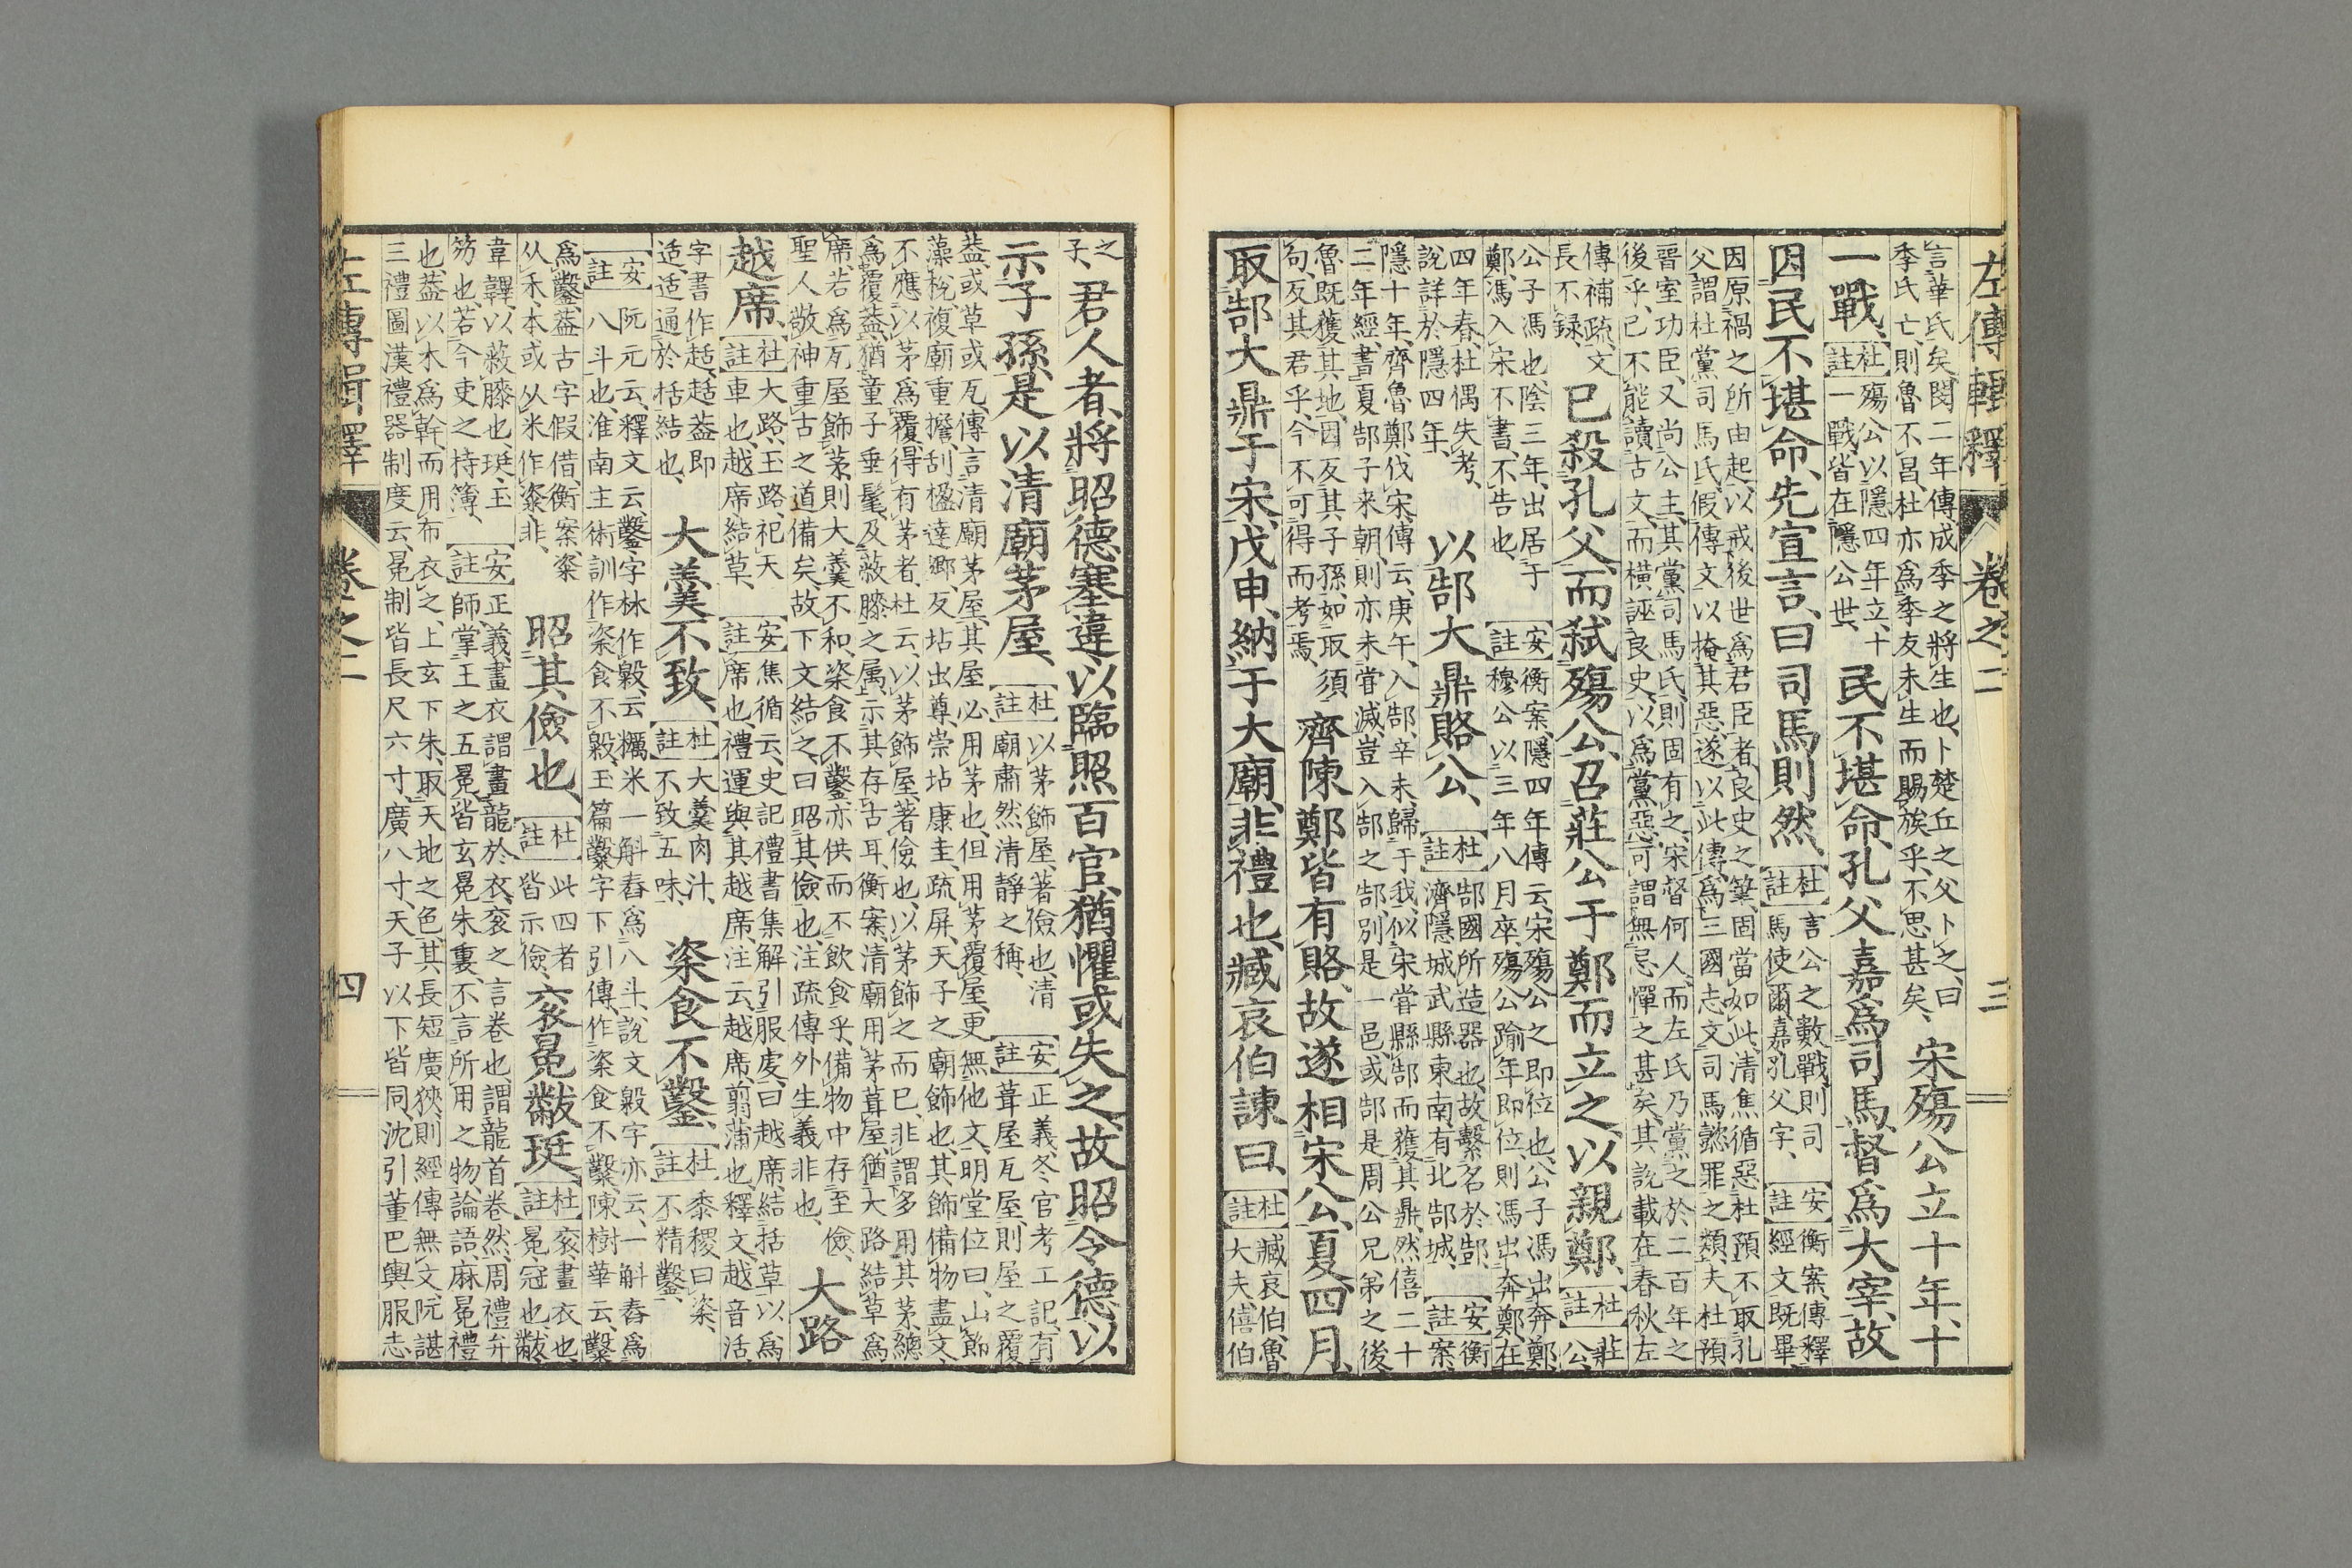 左傳輯釋 卷之二 三
言華氏矣、閔二年傳成季之將生也、卜楚丘之父卜之、曰
季氏亡、則魯不昌、杜亦爲季友未生而賜族乎、不思甚矣、
宋殤公立十年、十
一戰、
杜註 殤公以隱四年立、十
一戰皆在隱公世、
民不堪命、孔父嘉爲司馬、督爲大宰、故
因民不堪命、先宣言、曰司馬則然、
杜註 言公之數戰、則司
馬使爾、嘉孔父字、
安註 衡案、傳釋
經文既畢、
因原禍之所由起、以戒後世爲君臣者、良史之筆、固當如此、清焦循惡杜預不取孔
父謂杜黨司馬氏、假傳文以掩其惡、遂以此傳爲三國志文、司馬懿罪之類、夫杜預
晉室功臣、又尚公主、其黨司馬氏、則固有之、宋督何人、而左氏乃黨之於二百年之
後乎、己不能讀古文、而橫誣良史、以爲黨惡、可謂無忌憚之甚矣、其說載在春秋左
傳補疏、文
長不錄、
已殺孔父、而弑殤公、召莊公于鄭而立之、以親鄭、
杜註 莊
公、
公子馮也、陰三年、出居于
鄭、馮入宋不書、不告也、
安註 衡案、隱四年傳云、宋殤公之即位也、公子馮出奔鄭、
穆公以三年八月卒、殤公踰年即位、則馮出奔鄭、在
四年春、杜偶失考、
說詳於隱四年、
以郜大鼎賂公、
杜註 郜國所造器也、故繫名於郜、
濟隱城武縣東南有北郜城、
安註 衡
案、
隱十年、齊魯鄭伐宋、傳云、庚午、入郜、辛未、歸于我、似宋嘗縣郜而獲其鼎、然僖二十
二年經、書夏郜子来朝、則亦未嘗滅、豈入郜之郜、別是一邑、或郜是周公兄弟之後
魯既獲其地、因反其子孫、如取須
句、反其君乎、今不可得而考焉、
齊陳鄭皆有賂、故遂相宋公、夏四月、
取郜大鼎于宋、戊申、納于大廟、非禮也、臧哀伯諫曰、
杜註 臧哀伯、魯
大夫、僖伯
之
子、
君人者、將昭德塞違、以臨照百官、猶懼或失之、故昭令德、以
示子孫、是以清廟茅屋、
杜註 以茅飾屋、著儉也、清
廟肅然清靜之稱、
安註 正義、冬官考工記、有
葺屋瓦屋、則屋之覆
蓋、或草或瓦、傳言清廟茅屋、其屋必用茅也、但用茅覆屋、更無他文、明堂位曰、山節
藻梲、複廟重擔、刮楹達鄉、反坫出尊、崇坫康圭、疏屏、天子之廟飾也、其飾備物盡文、
不應以茅爲覆、得有茅者、杜云、以茅飾屋、著儉也、以茅飾之而已、非謂多用其茅、總
爲覆蓋、猶童子垂髦、及蔽膝之属、示其存古耳、衡案、清廟用茅葺屋、猶大路結草爲
席、若爲瓦屋飾茅、則大羹不和、粢食不鑿、亦供而不飲食乎、備物中存至儉、
聖人敬神重古之道備矣、故下文結之、曰昭其儉也、注疏傳外生義非也、
大路
越席、
杜註 大路、玉路、祀天
車也、越席、結草、
安註 焦循云、史記禮書集解引服虔曰、越席、結括草以爲
席也、禮運與其越席、注云、越席、翦蒲也、釋文、越音活、
字書作趏、趏蓋即
适、适通於括、結也、
大羹不致、
杜註 大羹肉汁、
不致五味、
粢食不鑿、
杜註 黍稷曰粢、
不精鑿、
安註 阮元云、釋文云、鑿、字林作毇、云、糲米一斛舂爲八斗、說文毇字亦云、一斛舂爲
八斗也、淮南主術訓作粢食不毇、玉篇糳字下引傳、作粢食不糳、陳樹華云、鑿
爲糳、蓋古字假借、衡案、粢
从禾、本或从米作粢非、
昭其儉也、
杜註 此四者
皆示儉、
衮冕黻珽、
杜註 衮、畫衣也、
冕、冠也、黻、
韋韠、以蔽膝也、珽、玉
笏也、若今吏之持簿、
安註 正義、畫衣、謂畫龍於衣、衮之言卷也、謂龍首卷然、周禮弁
師、掌王之五冕、皆玄冕朱裏、不言所用之物、論語、麻冕禮
也、蓋以木爲幹、而用布衣之、上玄下朱、取天地之色、其長短廣狹、則經傳無文、阮諶
三禮圖漢禮器制度云、冕制皆長尺六寸、廣八寸、天子以下皆同、沈引董巴輿服志
左傳輯釋 卷之二 四